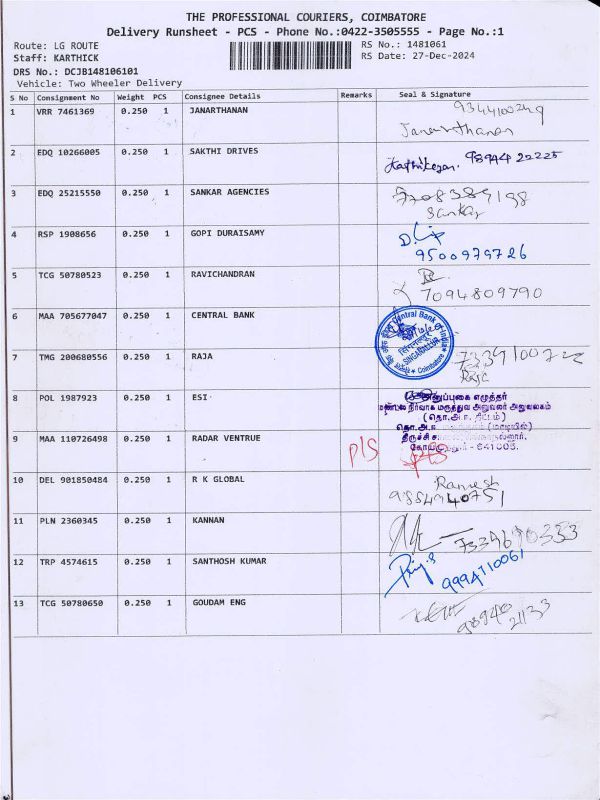 THE PROFESSIONAL COURIERS, COIMBATORE
Delivery Runsheet - PCS - Phone No.:0422-3505555 - Page No.:1
Route: LG ROUTE
RS No.: 1481061
Staff: KARTHICK
RS Date: 27-Dec-2024
DRS No.: DCJB148106101
Vehicle: Two Wheeler Delivery
S No Consignment No Weight PCS Consignee Details Remarks Seal & Signature
1 VRR 7461369 0.250 1 JANARTHANAN
Janarthanan
2 EDQ 10266005 0.250 1 SAKTHI DRIVES Karthikeyan. 98944 22225
3 EDQ 25215550 0.250 1 SANKAR AGENCIES 7708389198
Sankar
4 RSP 1908656 0.250 1 GOPI DURAISAMY
9500979726
5 TCG 50780523 0.250 1 RAVICHANDRAN
7094809790
6 MAA 705677047 0.250 1 CENTRAL BANK Central Bank of India
SINGANALLUR
Coimbatore
7 TMG 200680556 0.250 1 RAJA
Raja
8 POL 1987923 0.250 1 ESI அனுப்புகை எழுத்தர்
மண்டல நிர்வாக மருத்துவ அலுவலர் அலுவலகம்
(தொ.அ.ஈ. திட்டம்)
9 MAA 110726498 0.250 1 RADAR VENTRUE P/S P/S
10 DEL 901850484 0.250 1 R K GLOBAL Ramesh
9884940751
11 PLN 2360345 0.250 1 KANNAN
12 TRP 4574615 0.250 1 SANTHOSH KUMAR
9994710061
13 TCG 50780650 0.250 1 GOUDAM ENG
98940 21133